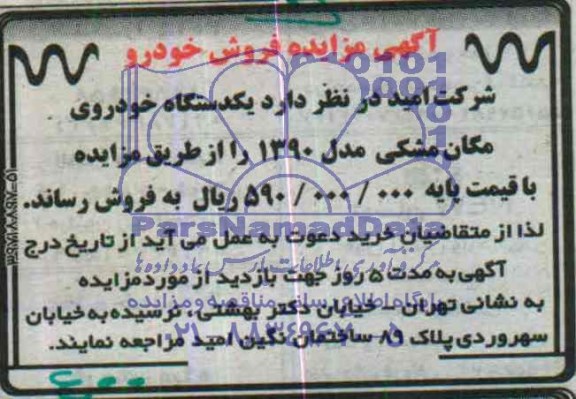 آگهی مزایده فروش خودرو
شرکت امید در نظر دارد یکدستگاه خودروی
مگان مشکی مدل ۱۳۹۰ را از طریق مزایده
با قیمت پایه ۵۹۰/۰۰۰/۰۰۰ ریال به فروش رساند.
لذا از متقاضیان خرید دعوت به عمل می آید از تاریخ درج
آگهی به مدت ۵ روز جهت بازدید از مورد مزایده
به نشانی تهران - خیابان دکتر بهشتی، نرسیده به خیابان
سهروردی پلاک ۸۹ ساختمان نگین امید مراجعه نمایند.
ParsNamadData